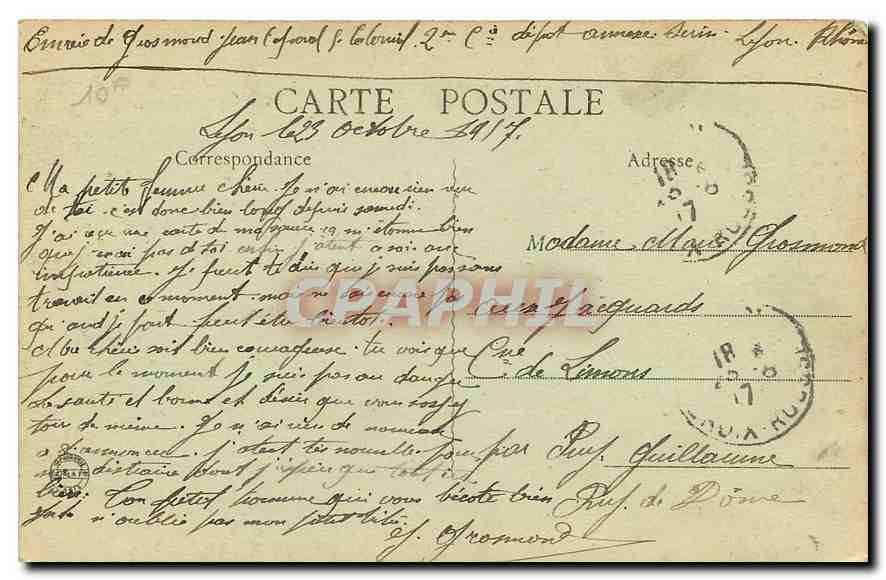 Envoie de Grosmond Jean Colonial 2me Cie dépôt annexe Serin Lyon Rhône
10F
CARTE POSTALE
Lyon le 23 octobre 1917.
Correspondance
Adresse
Ma petit femme chérie. Je n'ai encore rien eu
de toi. c'est donc bien long depuis samedi.
J'ai eu une carte de ma m'étonne bien
que j'nai pas de toi enfin j'atent a voir avec
impatience. Je peut te dire que je suis pas sans
travail en ce moment. mais ne sai encore pas
quand je part peut être bientot.
Ma chérie soit bien courageuse. tu vois que
pour le moment je suis pas au danger
La santé et bonne et désire que vous soyez
tous de même. Je n'ai rien de nouveau
a t'annoncer. j'atent tes nouvelle pour
me distraire dont j'espère que tout
bien. Ton petit homme qui vous bécote bien
n'oublie pas mon petit
J. Grosmond
Madame Marie Grosmond
aux Jacquards
Cne de Limons
par Puy Guillaume
Puy de Dôme
18
17
X-ROUSS
18
17
CROIX-ROUSS
CPAPHIL